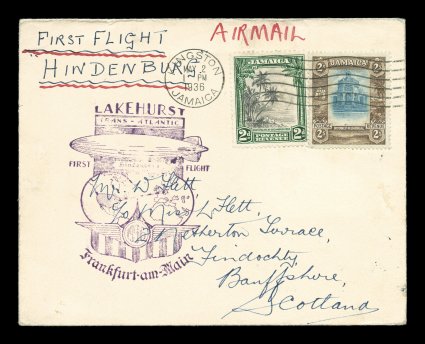 FIRST FLIGHT
HINDENBURG
AIRMAIL
KINGSTON
MAY 2
PM
1936
JAMAICA
JAMAICA
2d
POSTAGE
REVENUE
2d
JAMAICA
LAKEHURST
TRANS - ATLANTIC
HINDENBURG
FIRST FLIGHT
Frankfurt-am-Main
W. D. Flett
c/o Miss Flett,
Netherton Terrace,
Findochty,
Banffshire,
Scotland